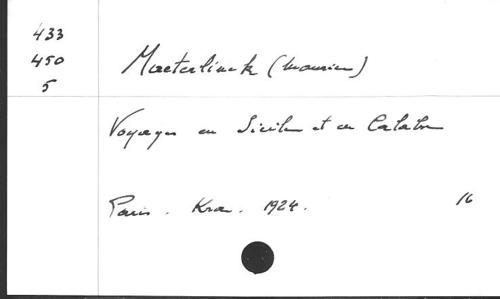 433
450
5
Maeterlinck (Maurice)
Voyage en Sicile et en Calabre
Paris. Kra. 1924.
16